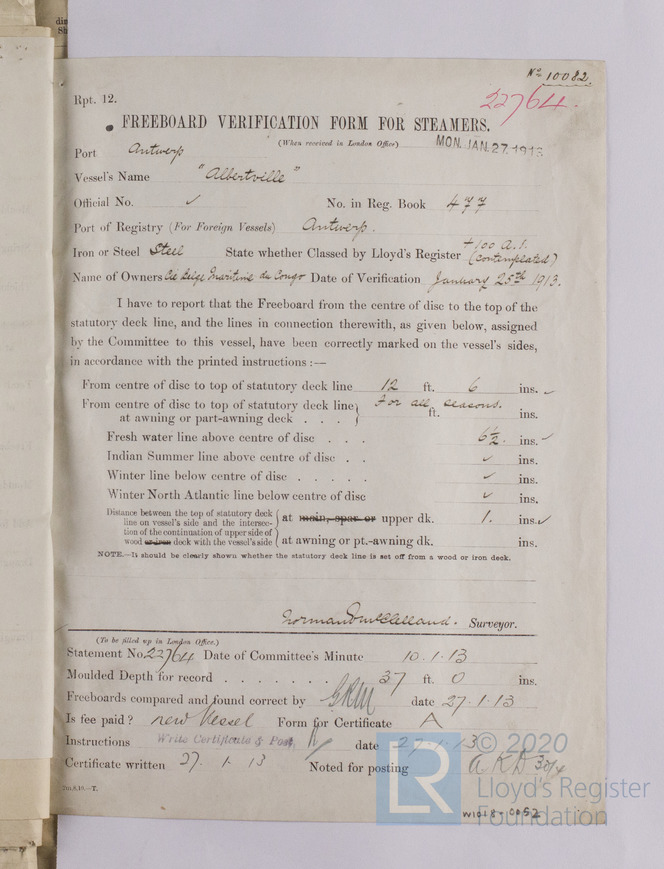 Nº 10082.
22764.
Rpt. 12.
FREEBOARD VERIFICATION FORM FOR STEAMERS.
(When received in London Office) MON. JAN. 27. 1913
Port Antwerp
Vessel's Name "Albertville"
Official No. ✓ No. in Reg. Book 477
Port of Registry (For Foreign Vessels) Antwerp.
Iron or Steel Steel State whether Classed by Lloyd's Register +100 A.1. (contemplated)
Name of Owners Cie Belge Maritime du Congo Date of Verification January 25th 1913.
I have to report that the Freeboard from the centre of disc to the top of the
statutory deck line, and the lines in connection therewith, as given below, assigned
by the Committee to this vessel, have been correctly marked on the vessel's sides,
in accordance with the printed instructions :—
From centre of disc to top of statutory deck line 12 ft. 6 ins. ✓
From centre of disc to top of statutory deck line for all seasons.
at awning or part-awning deck . . . ft. ins.
Fresh water line above centre of disc . . . 6½. ins. ✓
Indian Summer line above centre of disc . . ✓ ins.
Winter line below centre of disc . . . . . ✓ ins.
Winter North Atlantic line below centre of disc ✓ ins.
Distance between the top of statutory deck
line on vessel's side and the intersec- at main, spar or upper dk. 1. ins. ✓
tion of the continuation of upper side of
wood or iron deck with the vessel's side at awning or pt.-awning dk. ins.
NOTE.—It should be clearly shown whether the statutory deck line is set off from a wood or iron deck.
Surveyor.
(To be filled up in London Office.)
Statement No. 22764 Date of Committee's Minute 10.1.13
Moulded Depth for record . . . . . . . 37 ft. 0 ins.
Freeboards compared and found correct by date 27.1.13
Is fee paid? new vessel Form for Certificate A
Instructions Write Certificate & Post date 27.1.13
Certificate written 27. 1. 13 Noted for posting
7m,8,10.—T.
© 2020
LR
Lloyd's Register
Foundation
W1018-0052